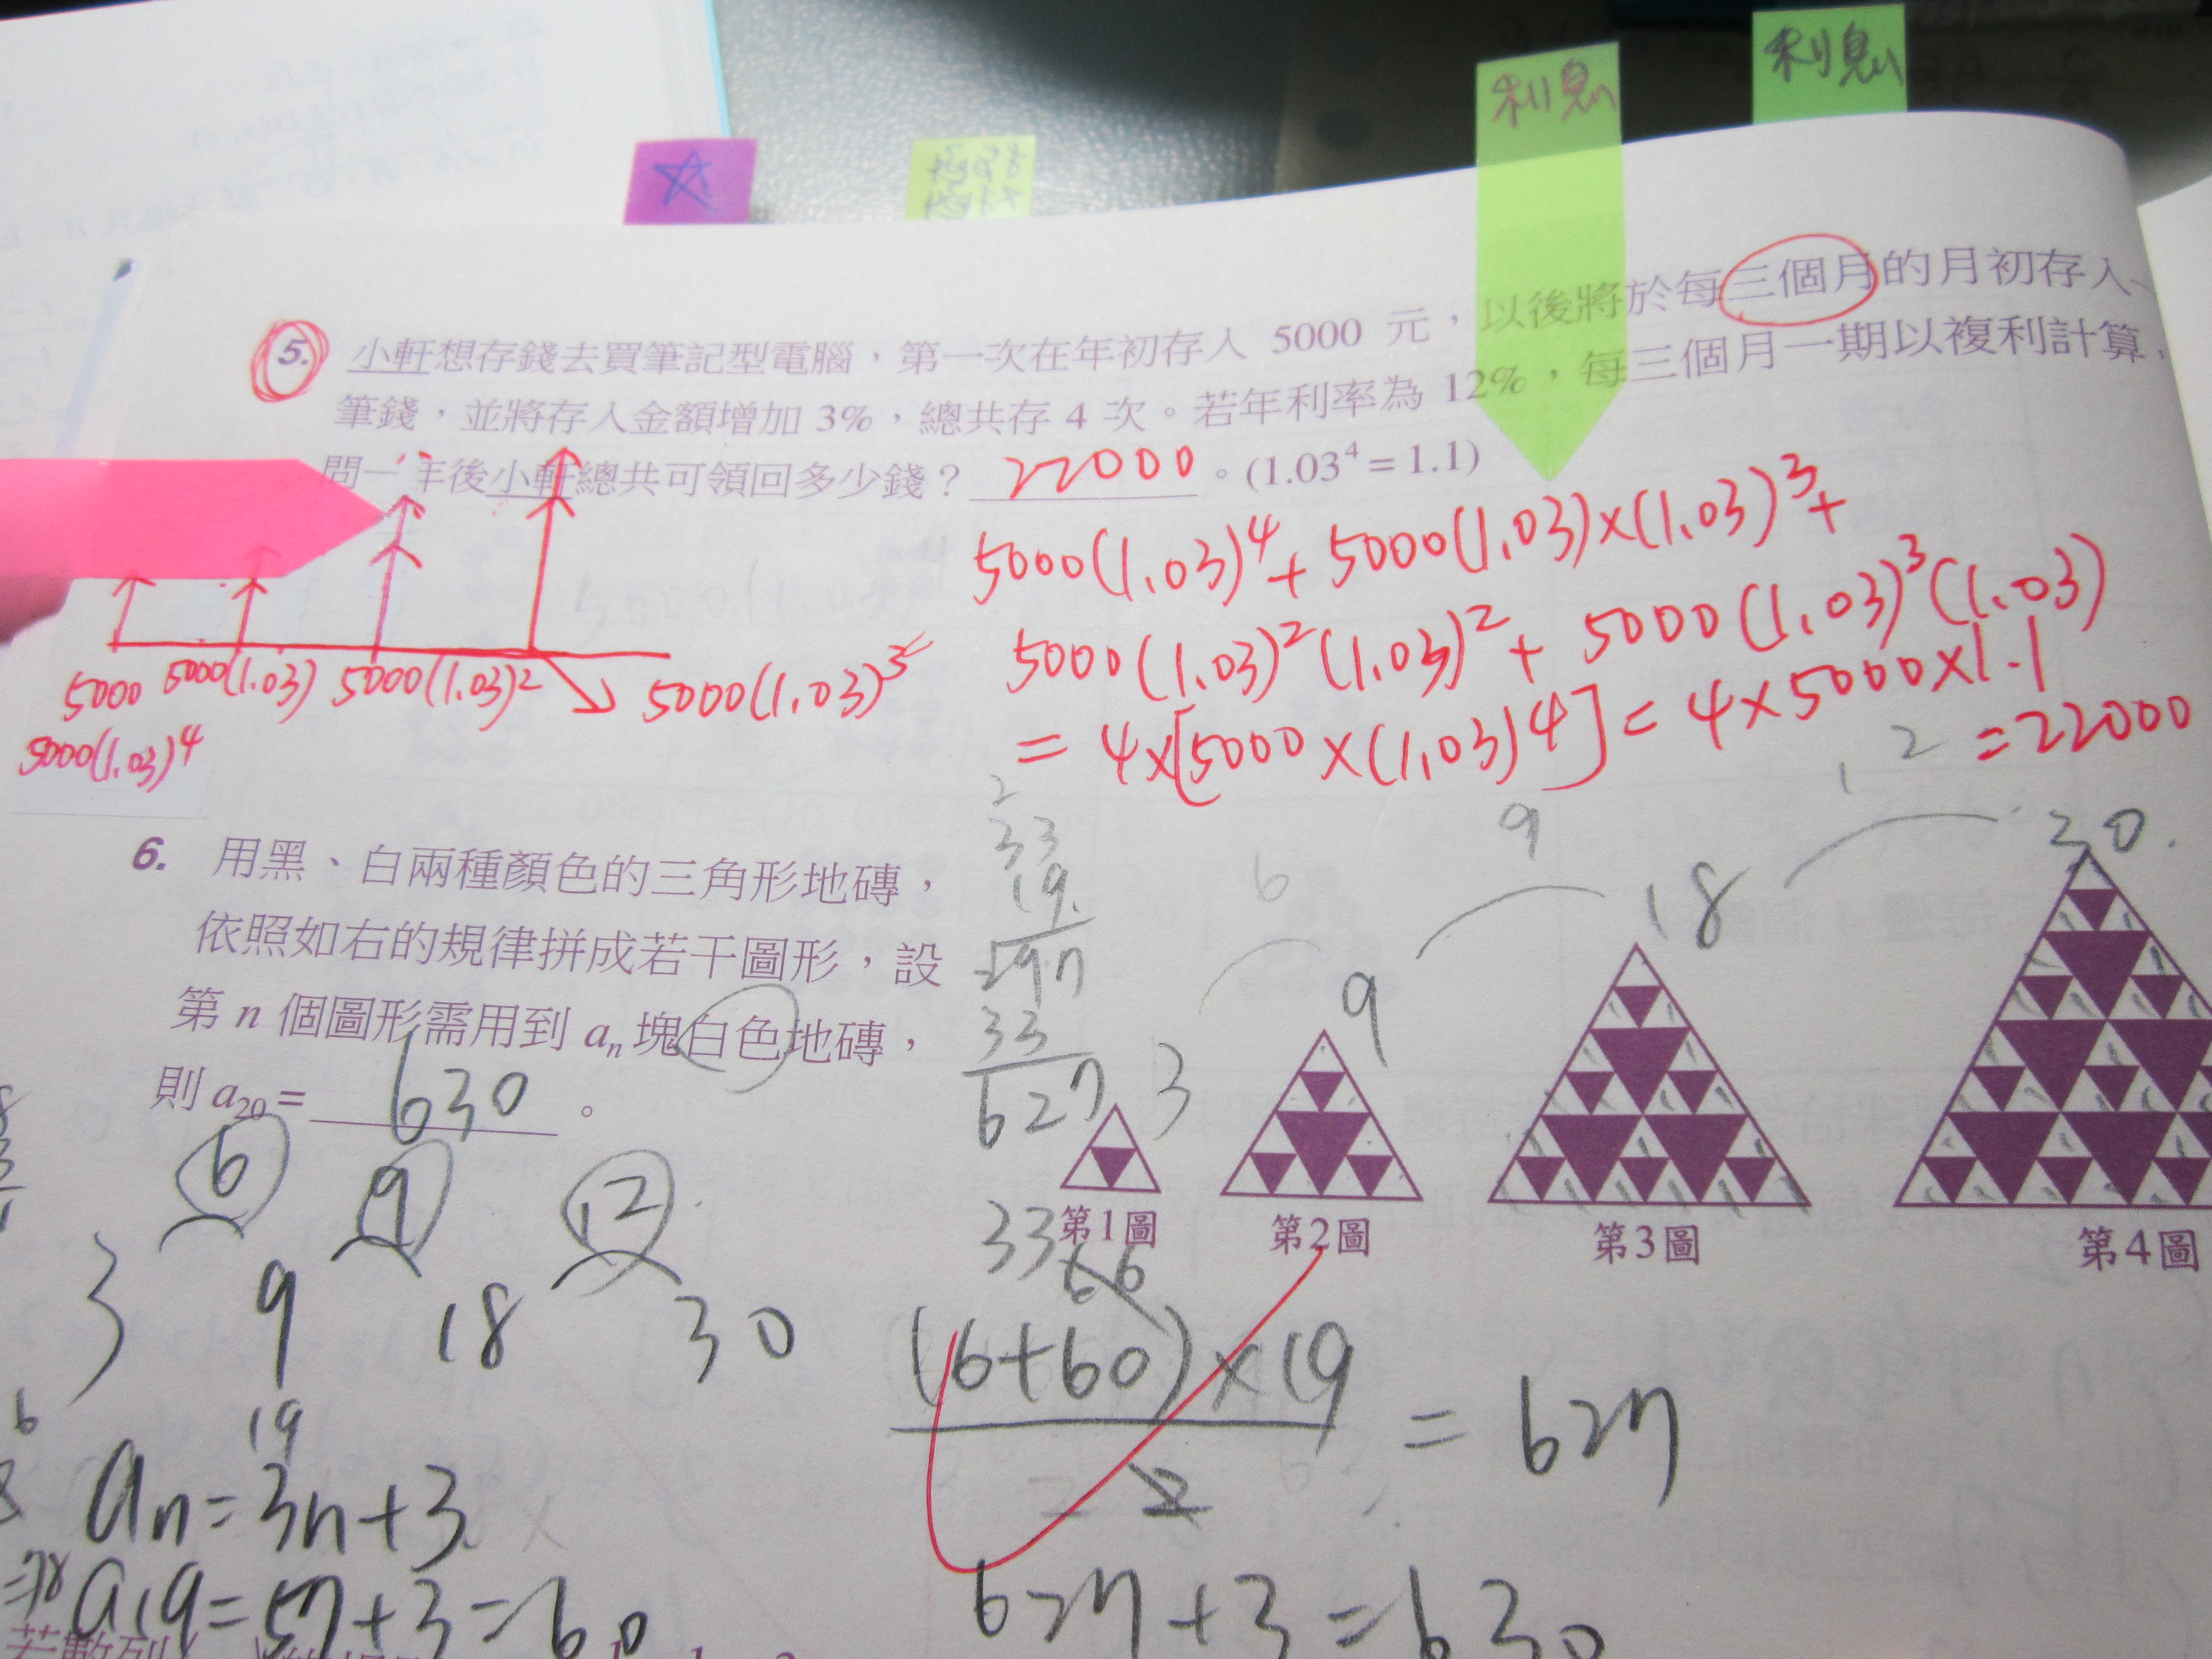 利息
利息
5. 小軒想存錢去買筆記型電腦，第一次在年初存入 5000 元，以後將於每三個月的月初存入
筆錢，並將存入金額增加 3%，總共存 4 次。若年利率為 12%，每三個月一期以複利計算，
問一年後小軒總共可領回多少錢？ 22000 。(1.03⁴ = 1.1)
5000(1.03)⁴ + 5000(1.03)×(1.03)³ +
5000(1.03)²(1.03)² + 5000(1.03)³(1.03)
= 4×[5000×(1.03)4] = 4×5000×1.1
= 22000
5000 5000(1.03) 5000(1.03)² 5000(1.03)³
5000(1.03)⁴
6. 用黑、白兩種顏色的三角形地磚，
依照如右的規律拼成若干圖形，設
第 n 個圖形需用到 aₙ 塊白色地磚，
則 a₂₀ = 630 。
2
33
19
297
33
627
6 9 12
3 9 18 30
第1圖 第2圖 第3圖 第4圖
6 9 12
3 9 18 30
33 66
(6+60)×19
2
= 627
19
an = 3n+3
a19 = 57+3 = 60
627+3 = 630